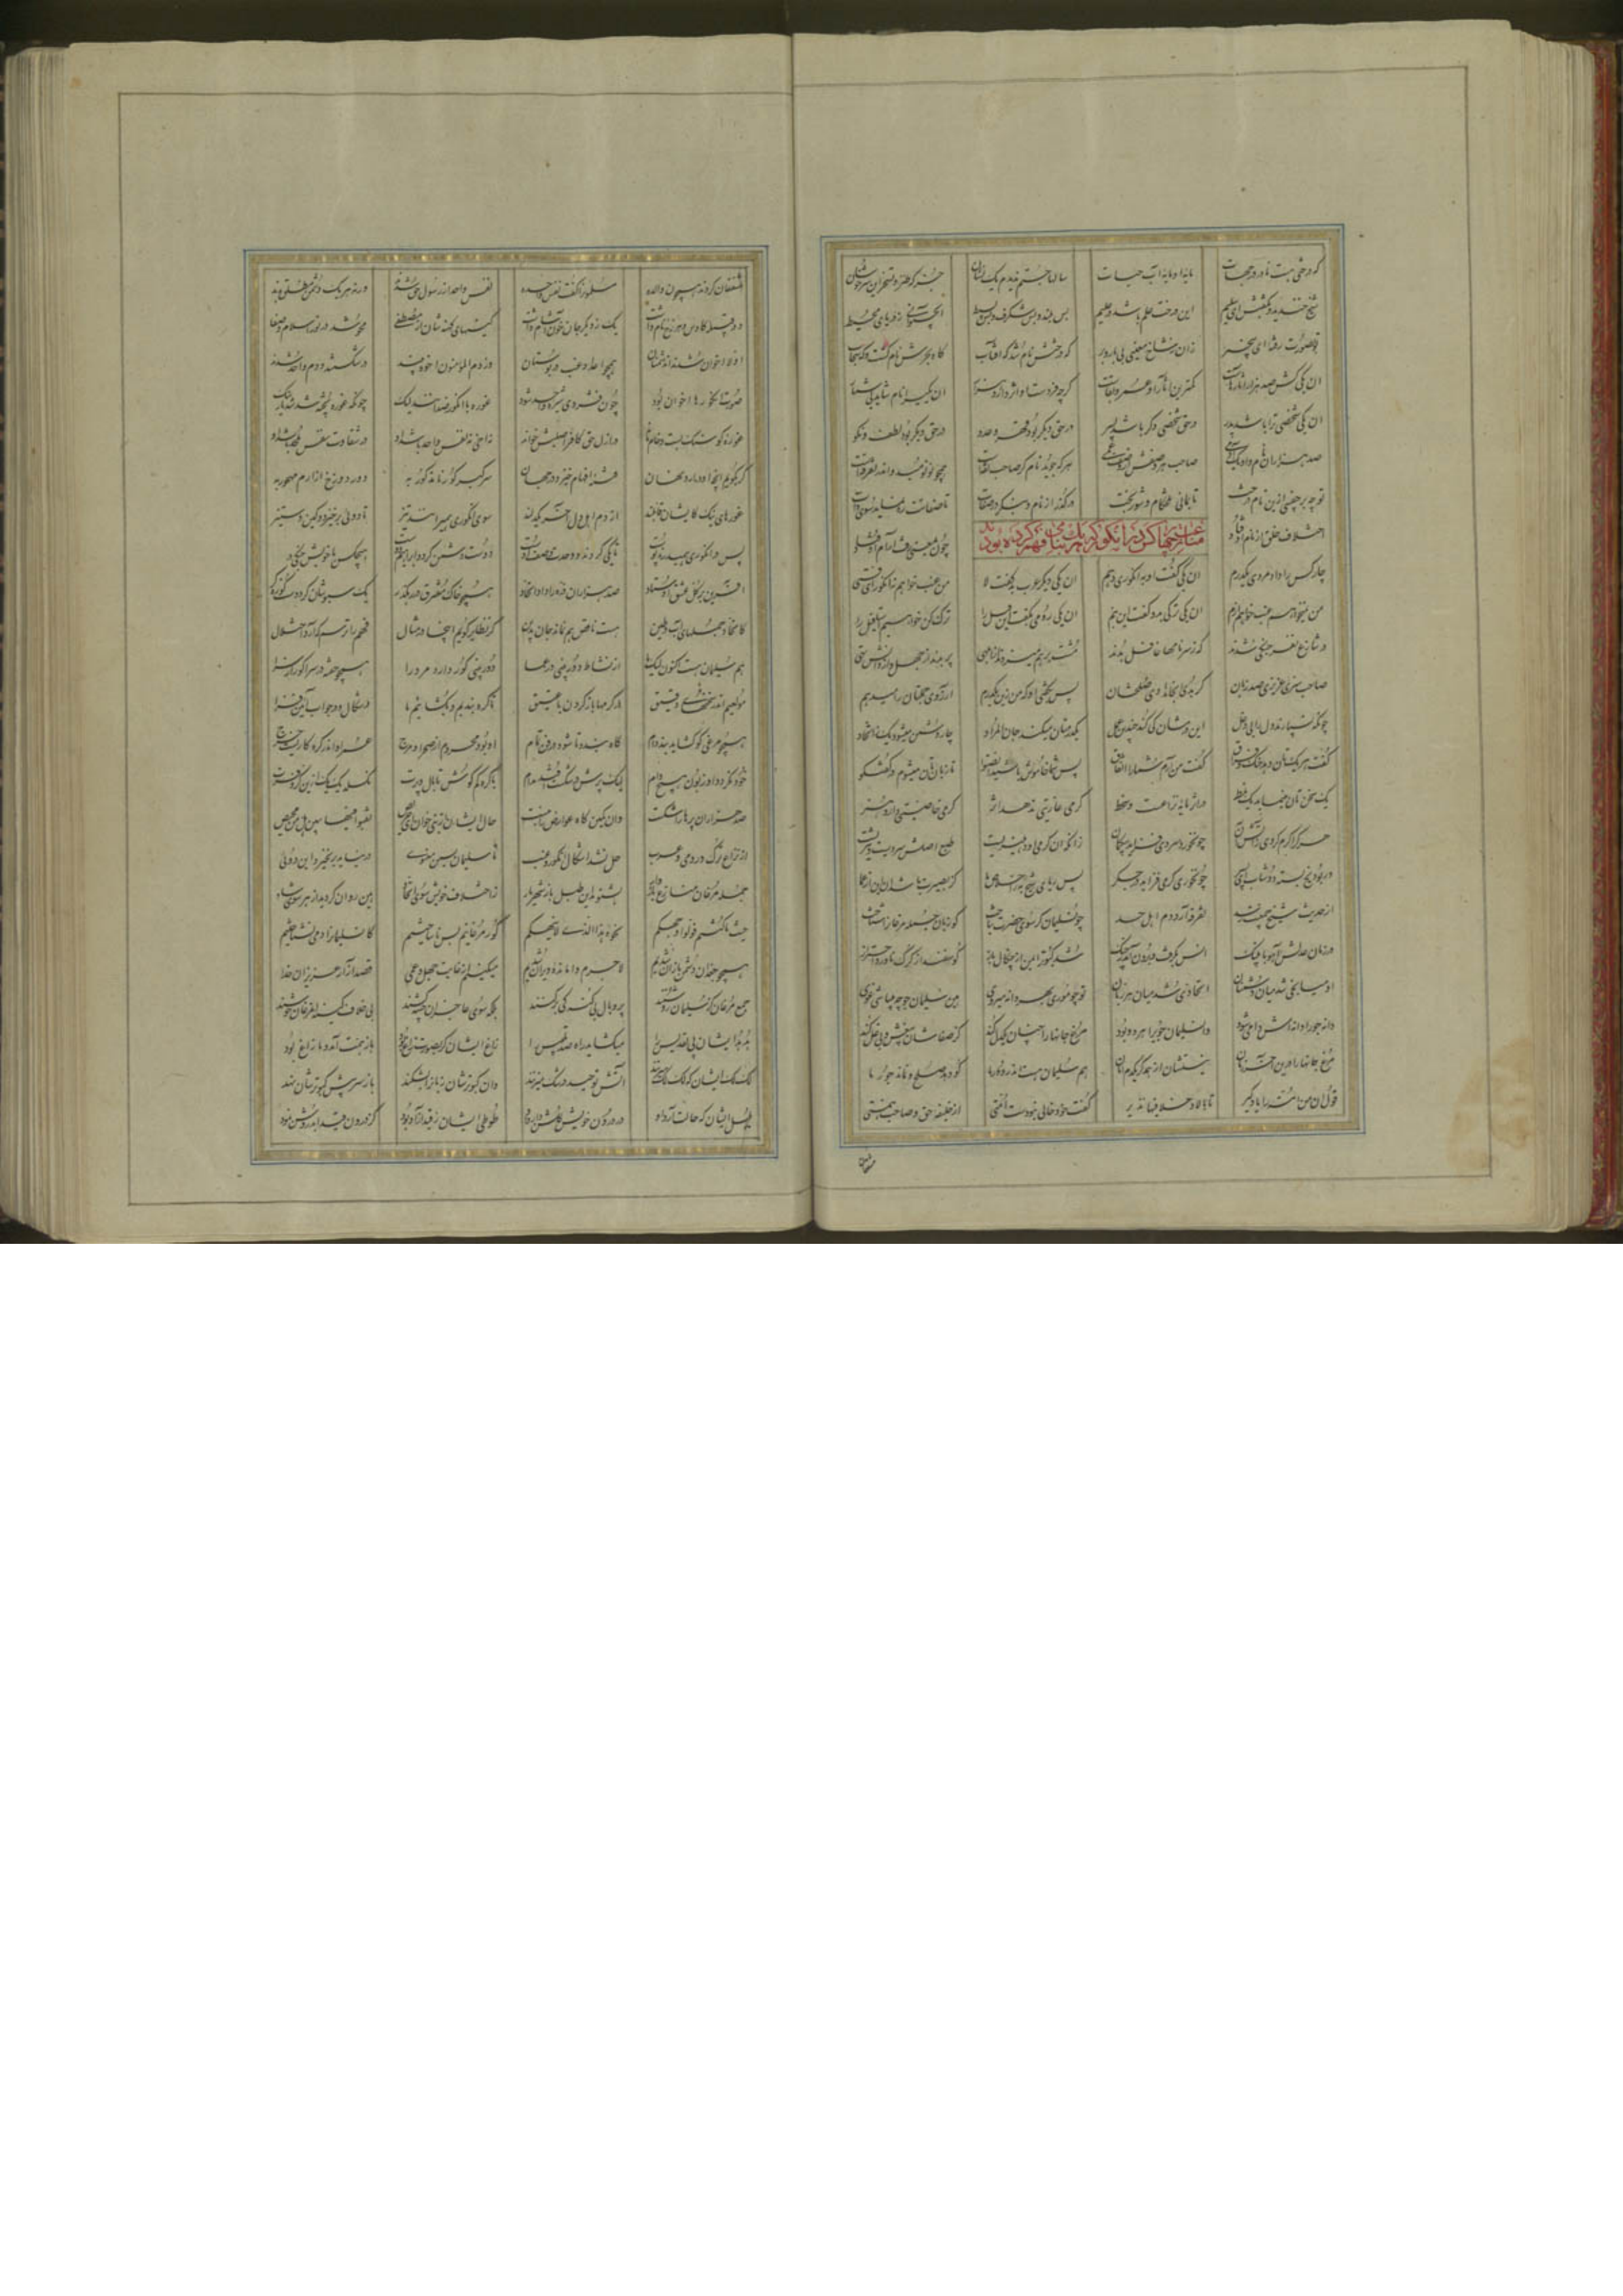 که درختی هست نادر در جهات مایه او مایه آب حیات سالها جستم ندیدم یک نشان جز که طنز و تسخر این سرخوشان
شیخ خندید و بگفتش ای سلیم این درخت علم باشد در علیم بس بلند و بس شگرف و بس بسیط آب حیوانی ز دریای محیط
تو بصورت رفته ای بیخبر زان ز شاخ معنیی بی بار و بر که درختش نام شد که آفتاب کاه بحرش نام گشت و که سحاب
ان یکی کش صد هزار آثار خاست کمترین آثار او عمر و بقاست گرچه فردست او اثر دارد هزار ان یکی را نام شاید بی شمار
ان یکی شخصی ترا باشد پدر در حق شخصی دگر باشد پسر در حق دیگر بود قهر و عدو در حق دیگر بود لطف و نکو
صد هزاران نام و او یک آدمی صاحب هر وصفش از وصفی عمی هر که جوید نام گر صاحب ثقاست همچو تو نومید و اندر تفرقه است
تو چه بر چفسی ازین نام درخت تا بمانی تلخکام و شوربخت درگذر از نام و بنگر در صفات تا صفاتت ره نماید سوی ذات
اختلاف خلق از نام اوفتاد چون بمعنی رفت آرام اوفتاد
منازعت چهار کس در انگور که هر یک بنامی فهم کرده بود
چار کس را داد مردی یکدرم ان یکی گفت او به انگوری دهم ان یکی دیگر عرب بد گفت لا من عنب خواهم نه انگور ای دغی
من نمیخواهم عنب خواهم ازم ان یکی ترکی بد و گفت این بنم ان یکی رومی بگفت این قیل را ترک کن خواهیم استافیل را
در تنازع ان نفر جنگی شدند که ز سر نامها غافل بدند مشت بر هم میزدند از ابلهی پر بدند از جهل و از دانش تهی
صاحب سری عزیزی صد زبان گر بدی آنجا بدادی صلحشان پس بگفتی او که من زین یکدرم آرزوی جملتان را میدهم
چونکه بسپارید دل را بی دغل این درمتان می کند چندین عمل یک درمتان میشود چار المراد چار دشمن میشود یک ز اتحاد
گفت هر یک تان دهد جنک و فراق گفت من آرد شما را اتفاق پس شما خاموش باشید انصتوا تا زبان تان میشوم در گفتگو
گر سخن تان مینماید یک نمط در اثر مایه نزاعست و سخط گرمی عاریتی ندهد اثر گرمی خاصیتی دارد هنر
سرکه را گر گرم کردی ز آتش آن چون خوری سردی فزاید بیگمان زانکه آن گرمی او دهلیزیست طبع اصلش سردیست و تیزیست
ور بود یخ بسته دوشاب ای پسر چون خوری گرمی فزاید در جگر پس ریای شیخ به ز اخلاص ما کز بصیرت باشد آن وین از عما
از حدیث شیخ جمعیت رسد تفرقه آرد دم اهل حسد چون سلیمان کز سوی حضرت بتاخت کو زبان جمله مرغان را شناخت
در زمان عدلش آهو با پلنگ انس بگرفت و برون آمد ز جنگ شد کبوتر ایمن از چنگال باز گوسفند از گرگ ناورد احتراز
او میانجی شد میان دشمنان اتحادی شد میان پرزنان تو چو موری بهر دانه میدوی هین سلیمان جو چه میباشی غوی
دانه جو را دانه اش دامی شود وان سلیمان جوی را هر دو بود مرغ جانها را چنان یکدل کند کز صفاشان بی غش و بی غل کند
مرغ جانها را درین آخر زمان نیستشان از همدگر یکدم امان هم سلیمان هست اندر دور ما کو دهد صلح و نماند جور ما
قول ان من امة را یاد گیر تا بالا و خلا فیها نذیر گفت خود خالی نبودست امتی از خلیفه حق و صاحب همتی
مشفقان
مشفقان گردند همچون والده مسلمون را گفت نفس واحده نفس واحد از رسول حق شدند ورنه هر یک دشمن مطلق بدند
دو قبیله کاوس و خزرج نام داشت یک ز دیگر جان خون آشام داشت کینهای کهنه شان از مصطفی محو شد در نور اسلام و صفا
اولا اخوان شدند ان دشمنان همچو اعداد عنب در بوستان وز دم المؤمنون اخوه پند در شکستند و تن واحد شدند
صورت انگورها اخوان بود چون فشردی شیره واحد شود غوره با انگور ضدانند لیک چونکه غوره پخته شد شد یار نیک
غوره کو سنگ بست و خام ماند در ازل حق کافر اصلیش خواند نه اخی نه نفس واحد باشد او در شقاوت نفس ملحد باشد او
گر بگویم آنچه او دارد نهان فتنه افهام خیزد در جهان سر گبر کور نامذکور به دود دوزخ از ارم مهجور به
غورهای نیک کایشان قابلند از دم اهل دل آخر یکدلند سوی انگوری همیرانند تیز تا دوی برخیزد و کین و ستیز
پس در انگوری همیدرند پوست تا یکی گردند و وحدت وصف اوست دوست دشمن گردد ایرا هم دوست هیچکس با خویش جنگی در نبست
آفرین بر عشق کل اوستاد صد هزاران ذره را داد اتحاد همچو خاک مفترق در رهگذر یک سبوشان کرد دست کوزه گر
کاتحاد جسمهای آب و طین هست ناقص جان نمیماند بدین گر نظایر گویم اینجا در مثال فهم را ترسم که آرد اختلال
هم سلیمان هست اکنون لیک ما از نشاط دوربینی در عما دوربینی کور دارد مرد را همچو خفته در سرا کور از سرا
مولعیم اندر سخنهای دقیق در گرهها باز کردن ما عشیق تا گره بندیم و بگشاییم ما در شکال و در جواب آیین فزا
همچو مرغی کو گشاید بند دام گاه بندد تا شود در فن تمام او بود محروم از صحرا و مرج عمر او اندر گره کاریست خرج
خود نگردد او زبون هیچ دام لیک پرش در شکست افتد مدام با گره کم کوش تا بال و پرت نگسلد یک یک ازین کر و فرت
صد هزاران مرغ پرهاشان شکست وان کمین گاه عوارض را نبست حال ایشان از نبی خوان ای حریص نقبوا فیها ببین هل من محیص
از نزاع ترک و رومی و عرب حل نشد اشکال انگور و عنب تا سلیمان لسین معنوی در نیاید برنخیزد این دوی
جمله مرغان منازع بازوار بشنوید این طبل باز شهریار ز اختلاف خویش سوی اتحاد هین ز هر جانب روان گردید شاد
حیث ما کنتم فولوا وجهکم نحوه هذا الذی لم ینهکم کور مرغانیم و بس ناساختیم کان سلیمان را دمی نشناختیم
همچو جغدان دشمن بازان شدیم لاجرم وامانده ویران شدیم میکنیم از غایت جهل و عمی قصد آزار عزیزان خدا
جمع مرغان کز سلیمان روشنند پر و بال بی گنه کی برکنند بلکه سوی عاجزان چینه کشند بی خلاف و کینه آن مرغان خوشند
هدهد ایشان پی تقدیس را میگشاید راه صد بلقیس را زاغ ایشان گر بصورت زاغ بود باز همت آمد و ما زاغ بود
لکلک ایشان که لکلک میزند آتش توحید در شک میزند وان کبوترشان ز بازان نشکهد باز سر پیش کبوترشان نهد
بلبل ایشان که حالت آرد او در درون خویش گلشن دارد او طوطی ایشان ز قند آزاد بود کز درون قند ابد رویش نمود